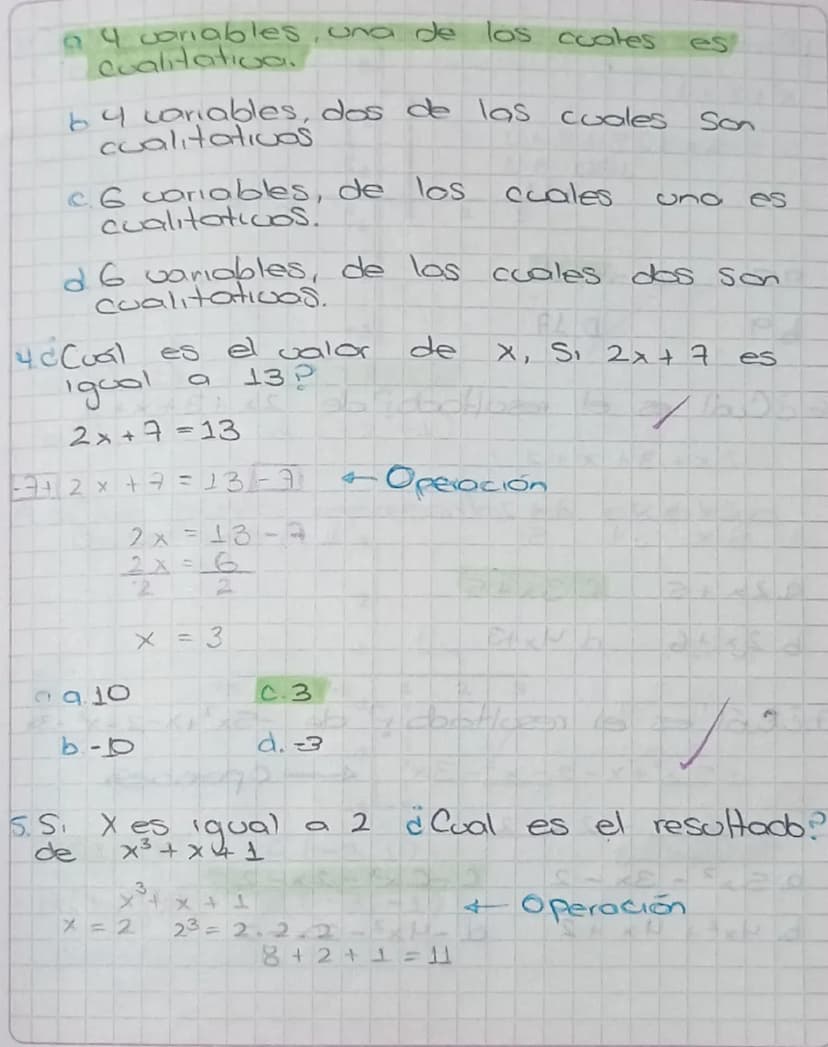 a 4 variables, una de las cuales es
cualitativa.
b 4 variables, dos de las cuales son
cualitativas
c. 6 variables, de las cuales una es
cualitativas.
d 6 variables, de las cuales dos son
cualitativas.
4 ¿Cuál es el valor de x, si 2x + 7 es
igual a 13?
2x + 7 = 13
-7+ 2x + 7 = 13 - 7 ← Operación
2x = 13 - 7
2x = 6
2 2
x = 3
a. 10 c. 3
b. -10 d. -3
5. Si X es igual a 2 ¿Cual es el resultado?
de x³ + x + 1
x³ + x + 1 ← Operación
x = 2 2³ = 2 . 2 . 2
8 + 2 + 1 = 11